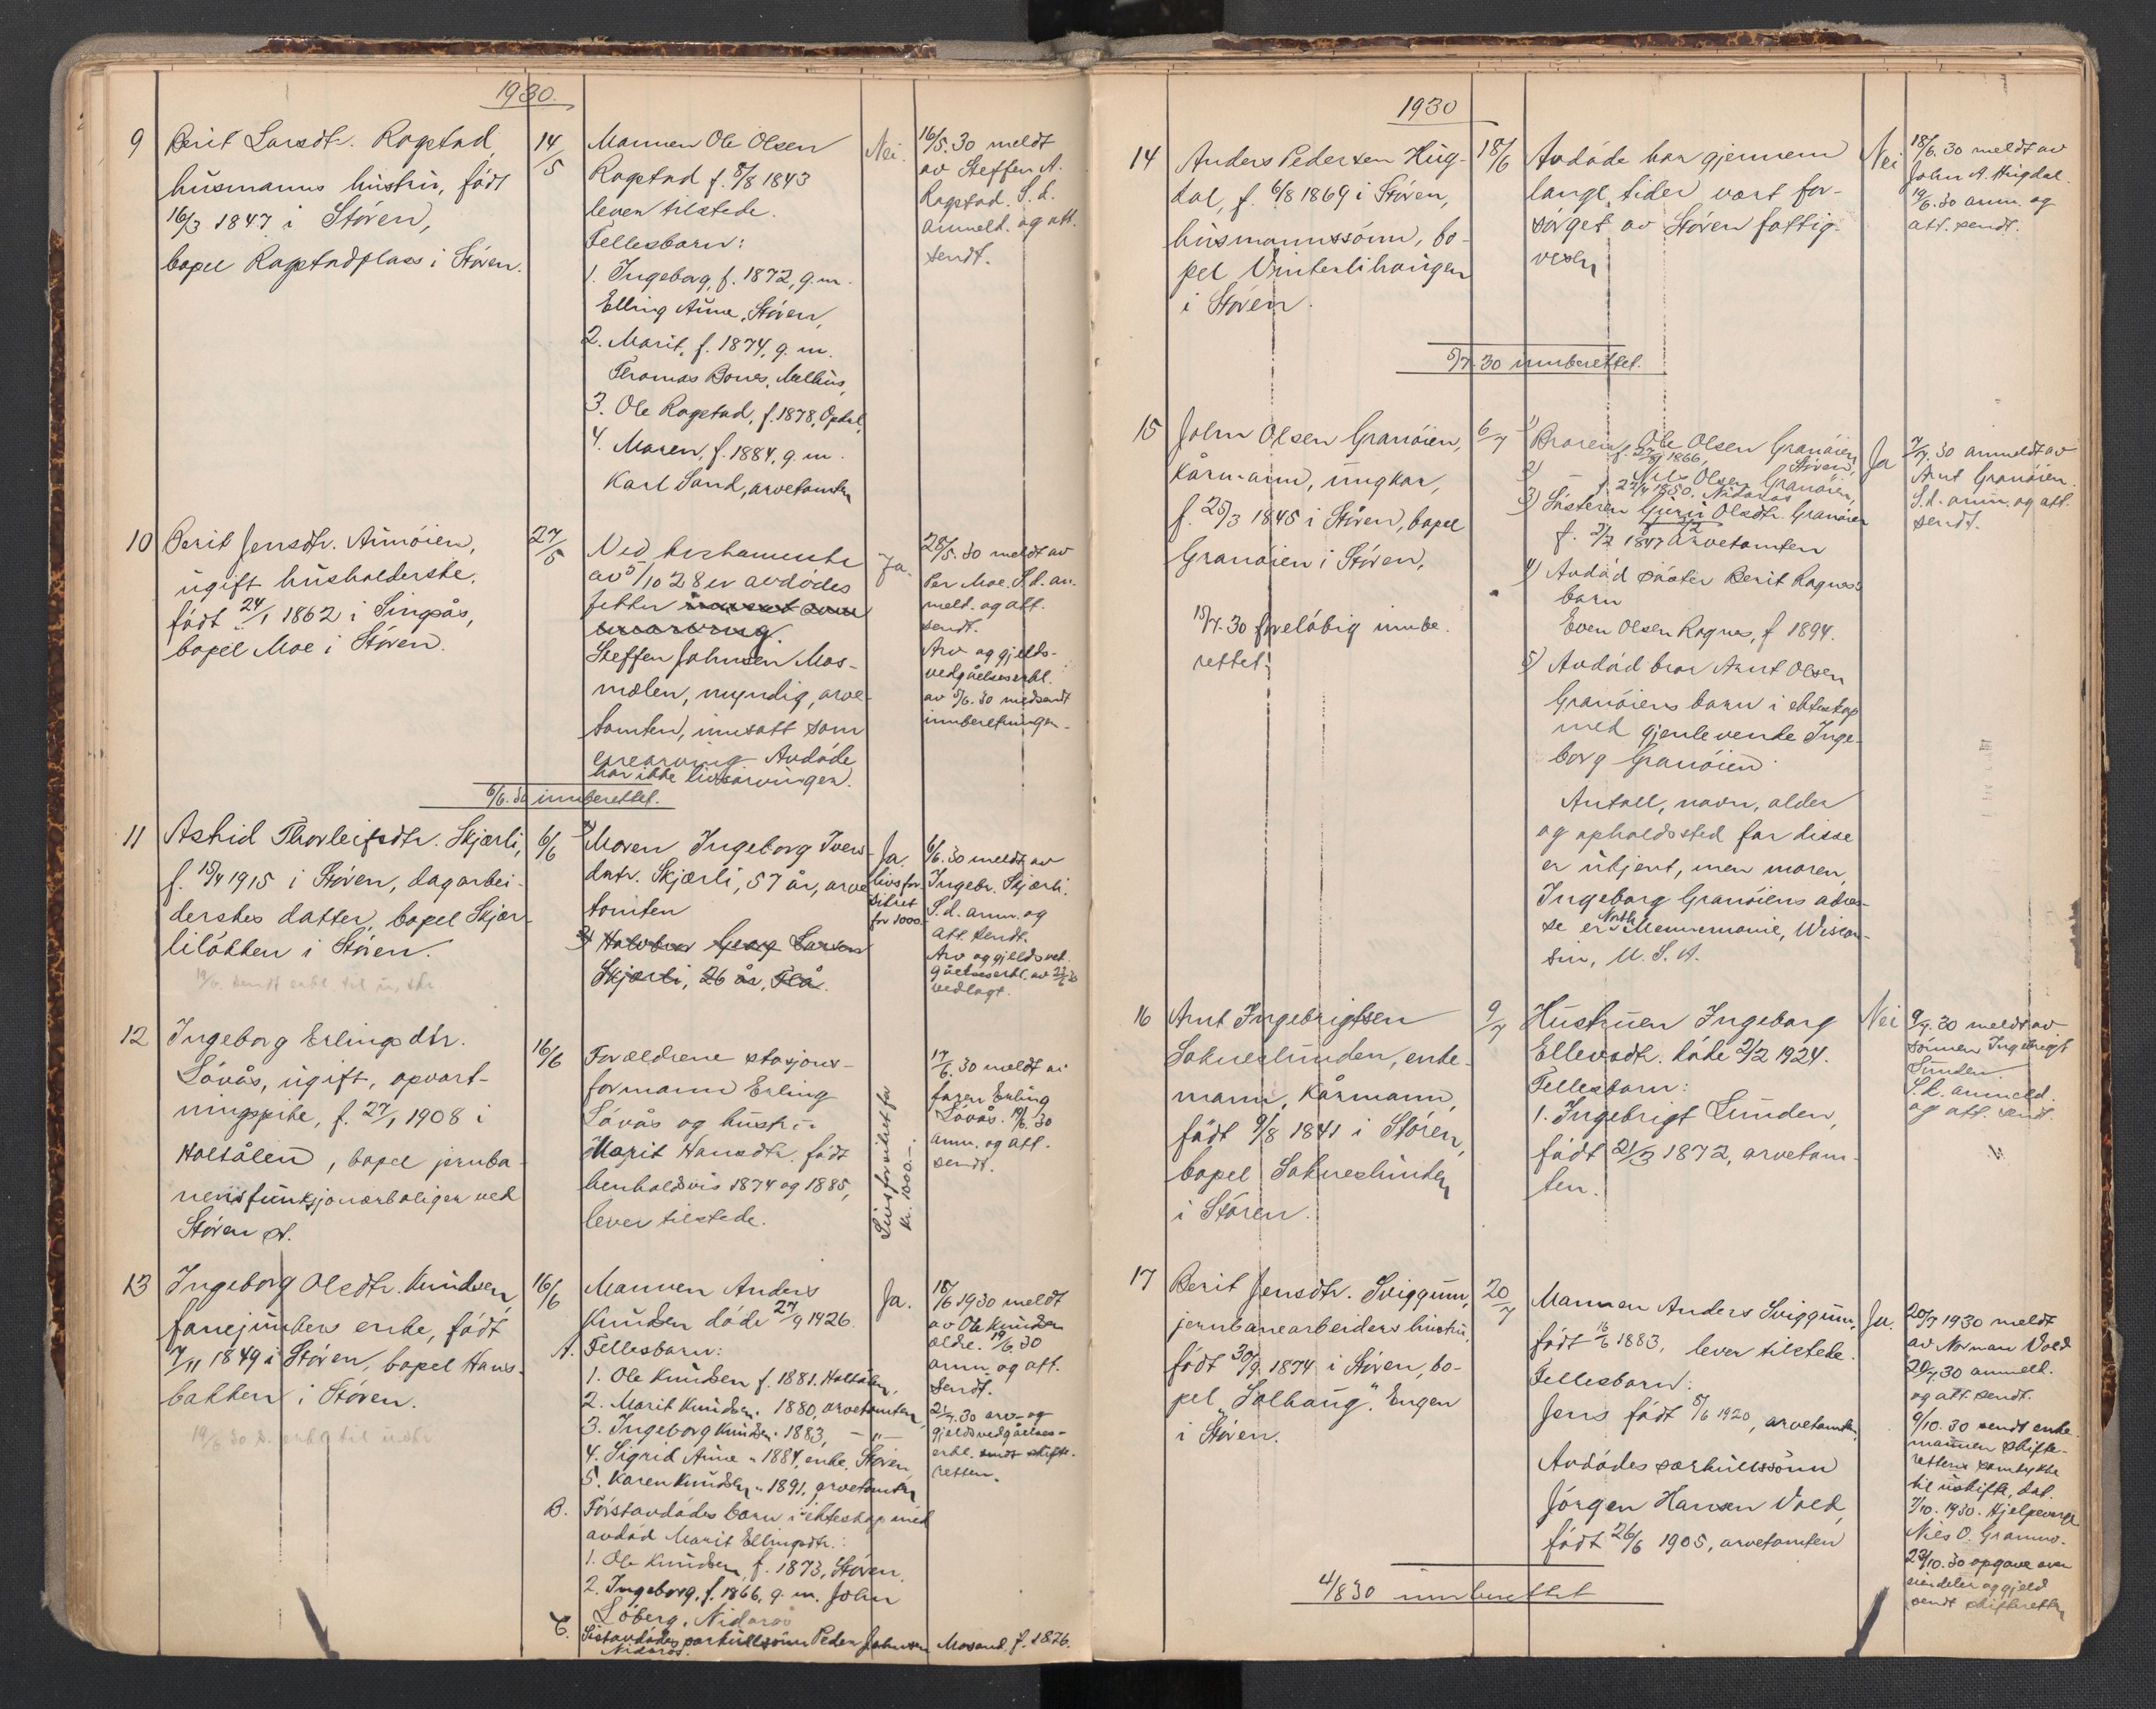 1930.
9
Berit Larsdtr. Rogstad,
husmanns hustru, født
16/3 1847 i Støren,
bopel Rogstadplass i Støren.
14/5
Mannen Ole Olsen
Rogstad f. 8/8 1843
lever tilstede.
Fellesbarn:
1. Ingeborg, f. 1872, g.m.
Elling Aune, Støren,
2. Marit, f. 1874, g.m.
Thomas Bones, Melhus,
3. Ole Rogstad, f. 1878, Opdal,
4. Maren, f. 1884, g.m.
Karl Sand, arvetomten
Nei.
16/5.30 meldt
av Steffen A.
Rogstad. S.d.
anmeld. og att.
sendt.
10
Berit Jensdtr. Aunøien,
ugift husholderske,
født 24/1 1862 i Singsås,
bopel Moe i Støren.
27/5
Ved testamente
av 5/10 28 er avdødes
fetter innsatt som
enearving.
Steffen Johnsen Mos-
mælen, myndig, arve-
tomten, innsatt som
enearving. Avdøde
har ikke livsarvinger.
Ja.
28/5.30 meldt av
Per Moe. S.d. an-
meld. og att.
sendt.
Arv og gjelds-
vedgåelseserkl.
av 5/6.30 medsendt
innberetningen.
6/6.30 innberettet.
11
Astrid Thorleifsdtr. Skjærli,
f. 15/4 1915 i Støren, dagarbei-
derskes datter, bopel Skjær-
liløkken i Støren.
6/6
1) Moren Ingeborg Ivers-
datr. Skjærli, 57 år, arve-
tomten
2) Halvbror Georg Larsen
Skjærli, 26 år, Flå.
Ja.
livsfor-
sikret
for 1000.-
6/6.30 meldt av
Ingebr. Skjærli.
S.d. anm. og
att. sendt.
Arv og gjeldsved-
gåelseserkl. av
vedlagt.
12
Ingeborg Erlingsdtr.
Løvås, ugift, opvart-
ningspike, f. 27/1 1908 i
Holtålen, bopel jernba-
nens funksjonærboliger ved
Støren st.
16/6
Forældrene stasjons-
formann Erling
Løvås og hustru
Marit Hansdtr. født
henholdsvis 1874 og 1885,
lever tilstede.
Livsforsikret for
kr. 1000.-
17/6.30 meldt av
faren Erling
Løvås. 19/6.30
anm. og att.
sendt.
13
Ingeborg Olsdtr. Knudsen,
fanejunkers enke, født
7/11 1849 i Støren, bopel Hans-
bakken i Støren.
16/6
Mannen Anders
Knudsen døde 27/9 1926.
A. Fellesbarn:
1. Ole Knudsen f. 1881. Holtålen,
2. Marit Knudsen " 1880, arvetomten,
3. Ingeborg Knudsen " 1883, - " -
4. Sigrid Aune " 1884, enke, Støren,
5. Karen Knudsen " 1891, arvetomten
B. Førstavdødes barn i ekteskap med
avdød Marit Ellingsdtr.:
1. Ole Knudsen, f. 1873, Støren.
2. Ingeborg, f. 1866, g.m. John
Løberg, Nidaros
C. Sistavdødes særkullssønn Peder Johnsen Mosand, f. 1876.
Nidaros.
Ja.
18/6 1930 meldt
av Ole Knudsen
eldre. 19/6.30
anm. og att.
sendt.
21/7.30 arv- og
gjeldsvedgåelses-
erkl. sendt skifte-
retten.
1930
14
Anders Pedersen Hug-
dal, f. 6/8 1869 i Støren,
husmannssønn, bo-
pel Vinterlihaugen
i Støren.
18/6
Avdøde har gjennem
lange tider vært for-
sørget av Støren fattig-
vesen
Nei
18/6.30 meldt av
John A. Hugdal.
19/6.30 anm. og
att. sendt.
5/7.30 innberettet.
15
John Olsen Granøien,
kårmann, ungkar,
f. 25/3 1845 i Støren, bopel
Granøien i Støren,
15/7.30 foreløbig innbe-
rettet.
6/7
1) Broren Ole Olsen Granøien,
f. 27/9 1866, Støren,
2) - Nils Olsen Granøien,
f. 27/4 1850. Nidaros
3) Søsteren Guru Olsdtr. Granøien
f. 2/2 1847 arvetomten
4) Avdød søster Berit Rognes's
barn
Even Olsen Rognes, f 1894.
5) Avdød bror Arnt Olsen
Granøiens barn i ekteskap
med gjenlevende Inge-
borg Granøien.
Antall, navn, alder
og opholdssted for disse
er ukjent, men moren,
Ingeborg Granøiens adres-
se er North Mennemonie, Wiscon-
sin, U.S.A.
Ja
7/7.30 anmeldt av
Arnt Granøien.
S.d. anm. og att.
sendt.
16
Arnt Ingebrigtsen
Sokneslunden, enke-
mann, kårmann,
født 9/8 1841 i Støren,
bopel Sokneslunden
i Støren.
9/7
Hustruen Ingeborg
Ellevsdtr. døde 2/2 1924.
Fellesbarn:
1. Ingebrigt Lunden,
født 21/3 1872, arvetom-
ten.
Nei
9/7.30 meldt av
sønnen Ingebrigt
Lunden
S.d. anmeld.
og att. sendt.
17
Berit Jensdtr. Sviggum,
jernbanearbeiders hustru,
født 30/9 1874 i Støren, bo-
pel "Solhaug", Engen
i Støren.
20/7
Mannen Anders Sviggum,
født 16/6 1883, lever tilstede.
Fellesbarn:
Jens født 5/6 1920, arvetomten,
Avdødes særkullssønn
Jørgen Hansen Vold,
født 26/6 1905, arvetomten
Ja.
20/7 1930 meldt
av Norman Vold
20/7.30 anmeld.
og att. sendt.
9/10.30 sendt enke-
mannen skifte-
rettens samtykke
til uskifte, dat.
7/10.1930. Hjelpeverge
Nils O. Gramo.
23/10.30 opgave over
eiendeler og gjeld
sendt skifteretten
4/8 30 innberettet